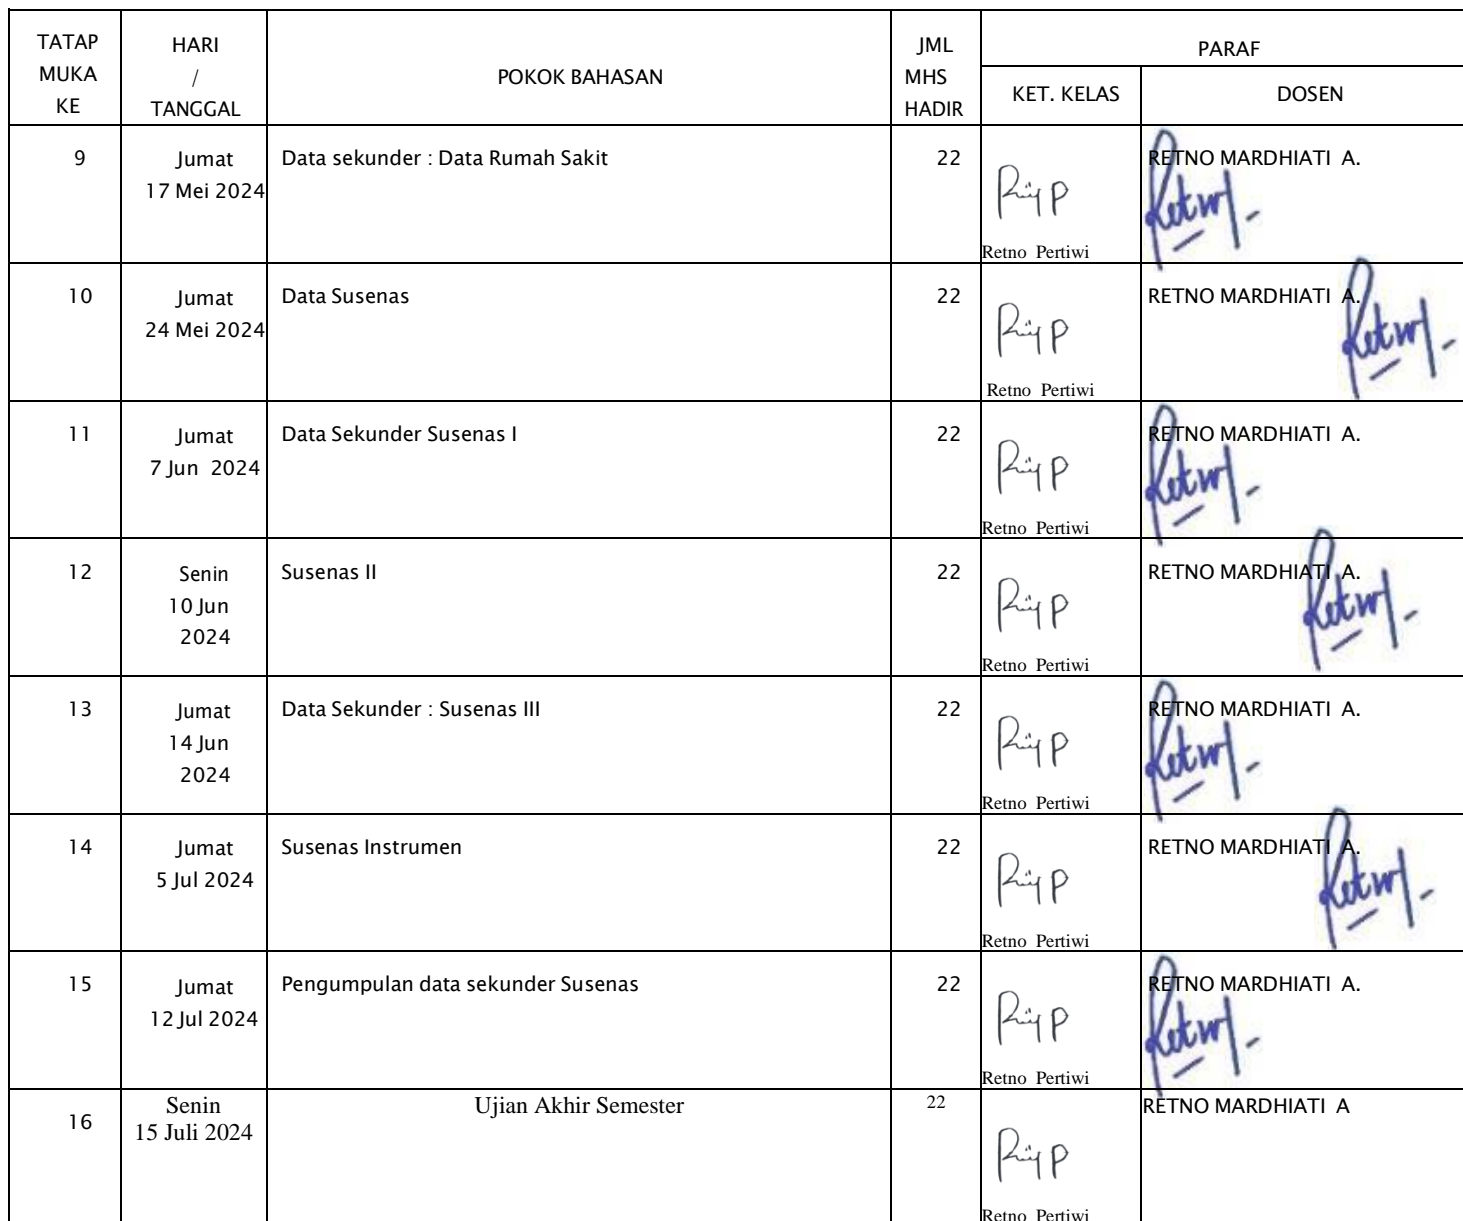 TATAP MUKA KE
HARI / TANGGAL
POKOK BAHASAN
JML MHS HADIR
PARAF
KET. KELAS
DOSEN
9
Jumat
17 Mei 2024
Data sekunder : Data Rumah Sakit
22
Retno Pertiwi
RETNO MARDHIATI A.
10
Jumat
24 Mei 2024
Data Susenas
22
Retno Pertiwi
RETNO MARDHIATI A.
11
Jumat
7 Jun 2024
Data Sekunder Susenas I
22
Retno Pertiwi
RETNO MARDHIATI A.
12
Senin
10 Jun
2024
Susenas II
22
Retno Pertiwi
RETNO MARDHIATI A.
13
Jumat
14 Jun
2024
Data Sekunder : Susenas III
22
Retno Pertiwi
RETNO MARDHIATI A.
14
Jumat
5 Jul 2024
Susenas Instrumen
22
Retno Pertiwi
RETNO MARDHIATI A.
15
Jumat
12 Jul 2024
Pengumpulan data sekunder Susenas
22
Retno Pertiwi
RETNO MARDHIATI A.
16
Senin
15 Juli 2024
Ujian Akhir Semester
22
Retno Pertiwi
RETNO MARDHIATI A